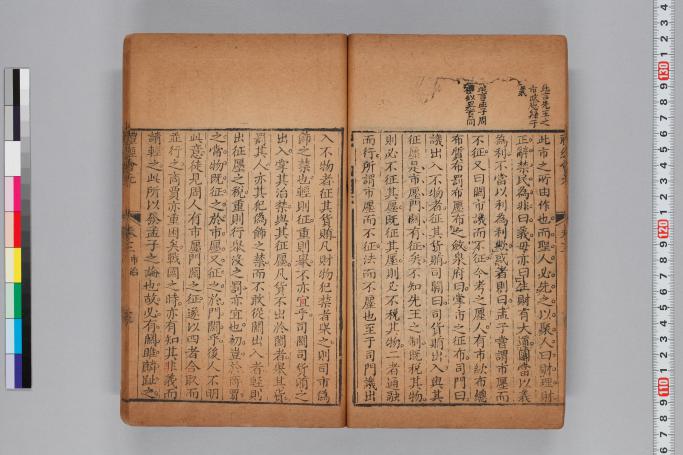 此市之所由作也而聖人必先之以聚人曰財理財
正辭禁民為非曰義毋亦曰生財有大道固當以義
為利不當以利為利歟或者則曰孟子嘗謂市廛而
不征又曰關市譏而不征今考之廛人有市絘布總
布質布罰布廛布而斂泉府曰掌市之征布司門曰
譏出入不物者征其貨賄司關曰司貨賄出入與其
征廛是市廛門關有征矣不知先王之制既征其物
則必不征其廛既征其廛則必不税其物二者通融
而行所謂市廛而不征法而不廛也至于司門譏出
入不物者征其貨賄凡財物犯禁者舉之則司市偽
飾之禁也輕則征重則舉不亦宜乎司關司貨賄之
出入掌其治禁與其征廛凡貨不出於關者舉其貨
罰其人亦其犯偽飾之禁而不敢從關出入者輕則
出征廛之税重則行舉没之罰亦宜也初豈於所貿
之當物既征之於市廛又征之於門關乎後人不明
此意徒見周人有市廛門關之征遂以四者合取而
並行之商賈亦重困矣戰國之時亦有知其非義而
請輕之此所以發孟子之論也故必有關雎麟趾之
禮經會元
卷三 市治